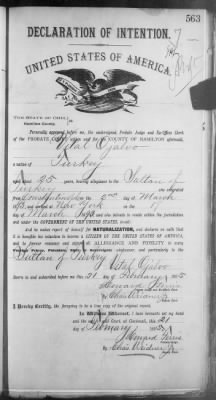 563
DECLARATION OF INTENTION.
UNITED STATES OF AMERICA.
THE STATE OF OHIO,
Hamilton County.
Personally appeared before me, the undersigned, Probate Judge and Ex-Officio Clerk
of the PROBATE COURT within and for the COUNTY OF HAMILTON aforesaid,
Vital Ojalvo
a native of Turkey
aged about 25 years, bearing allegiance to the Sultan of
Turkey who emigrated
from Constantinople on the 2nd day of March
New York
March and intends to reside within the jurisdiction
and under the GOVERNMENT OF THE UNITED STATES,
And he makes report of himself for NATURALIZATION, and declares
it is bonafide his intention to become a CITIZEN OF THE UNITED STATES OF AMERICA,
and to forever renounce and abjure all ALLEGIANCE AND FIDELITY to every
Foreign Prince, Potentate, State or Sovereignty whatsoever, and particularly to the
Sultan of Turkey
Vital Ojalvo
Sworn to and subscribed before me this 21 day of February 1895
Howard Ferris
By
I Hereby Certify, the foregoing to be a true copy of the original record.
In Witness Whereof, I have hereunto set my hand
and the seal of said Court at Cincinnati, this 21
day of February 1895
Howard Ferris
By